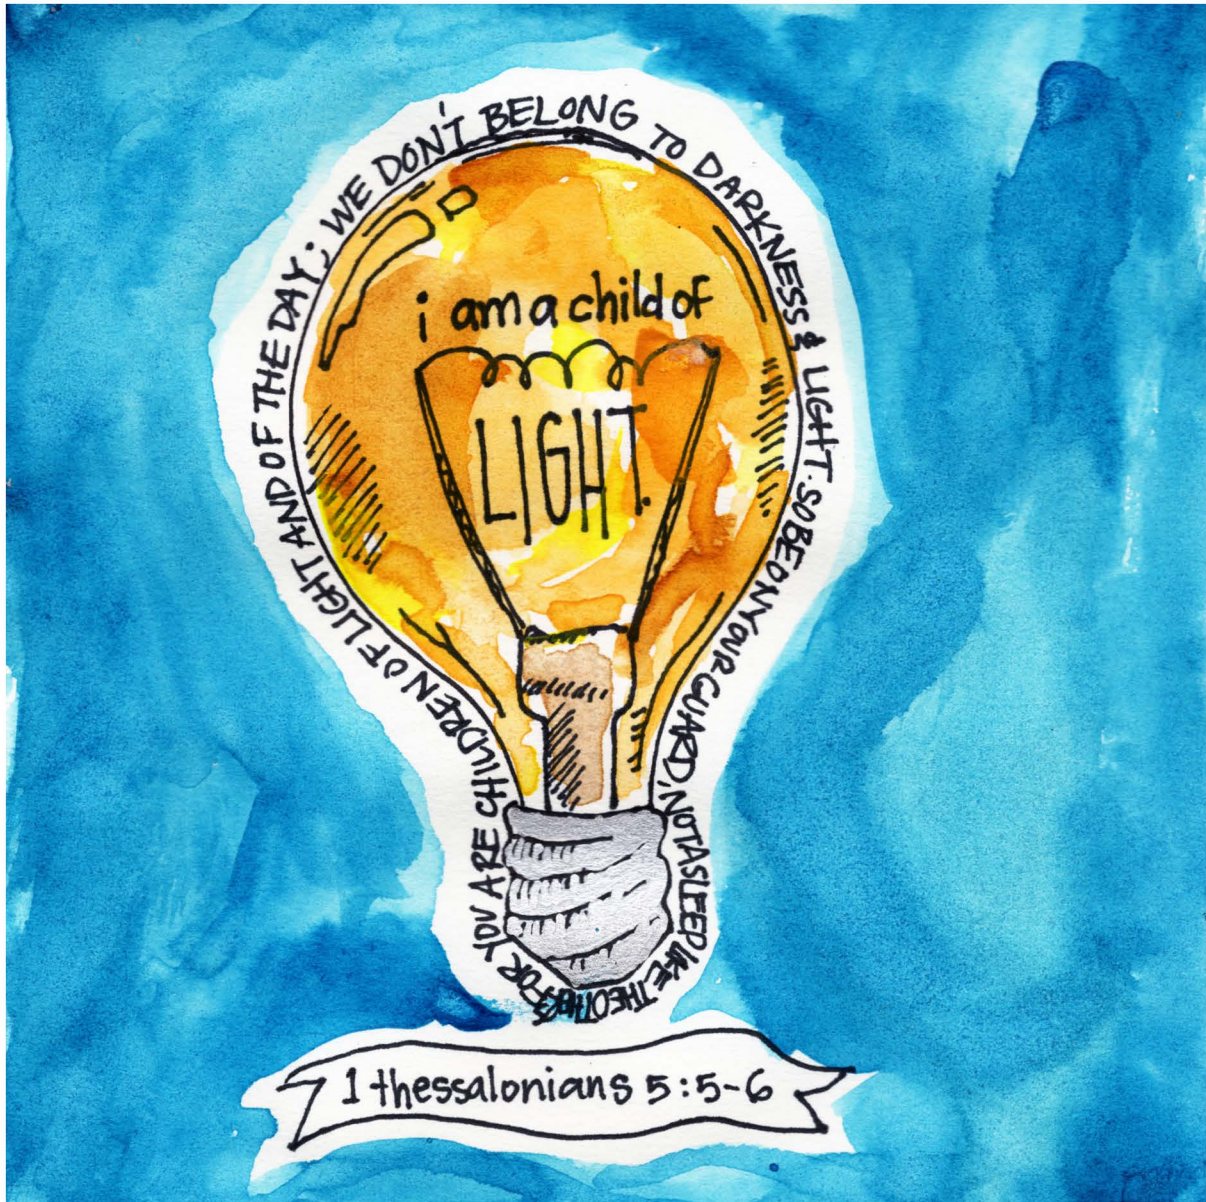 FOR YOU ARE CHILDREN OF LIGHT AND OF THE DAY; WE DON'T BELONG TO DARKNESS & LIGHT. SO BE ON YOUR GUARD, NOT ASLEEP LIKE THE OTHERS
i am a child of
LIGHT.
1 thessalonians 5:5-6